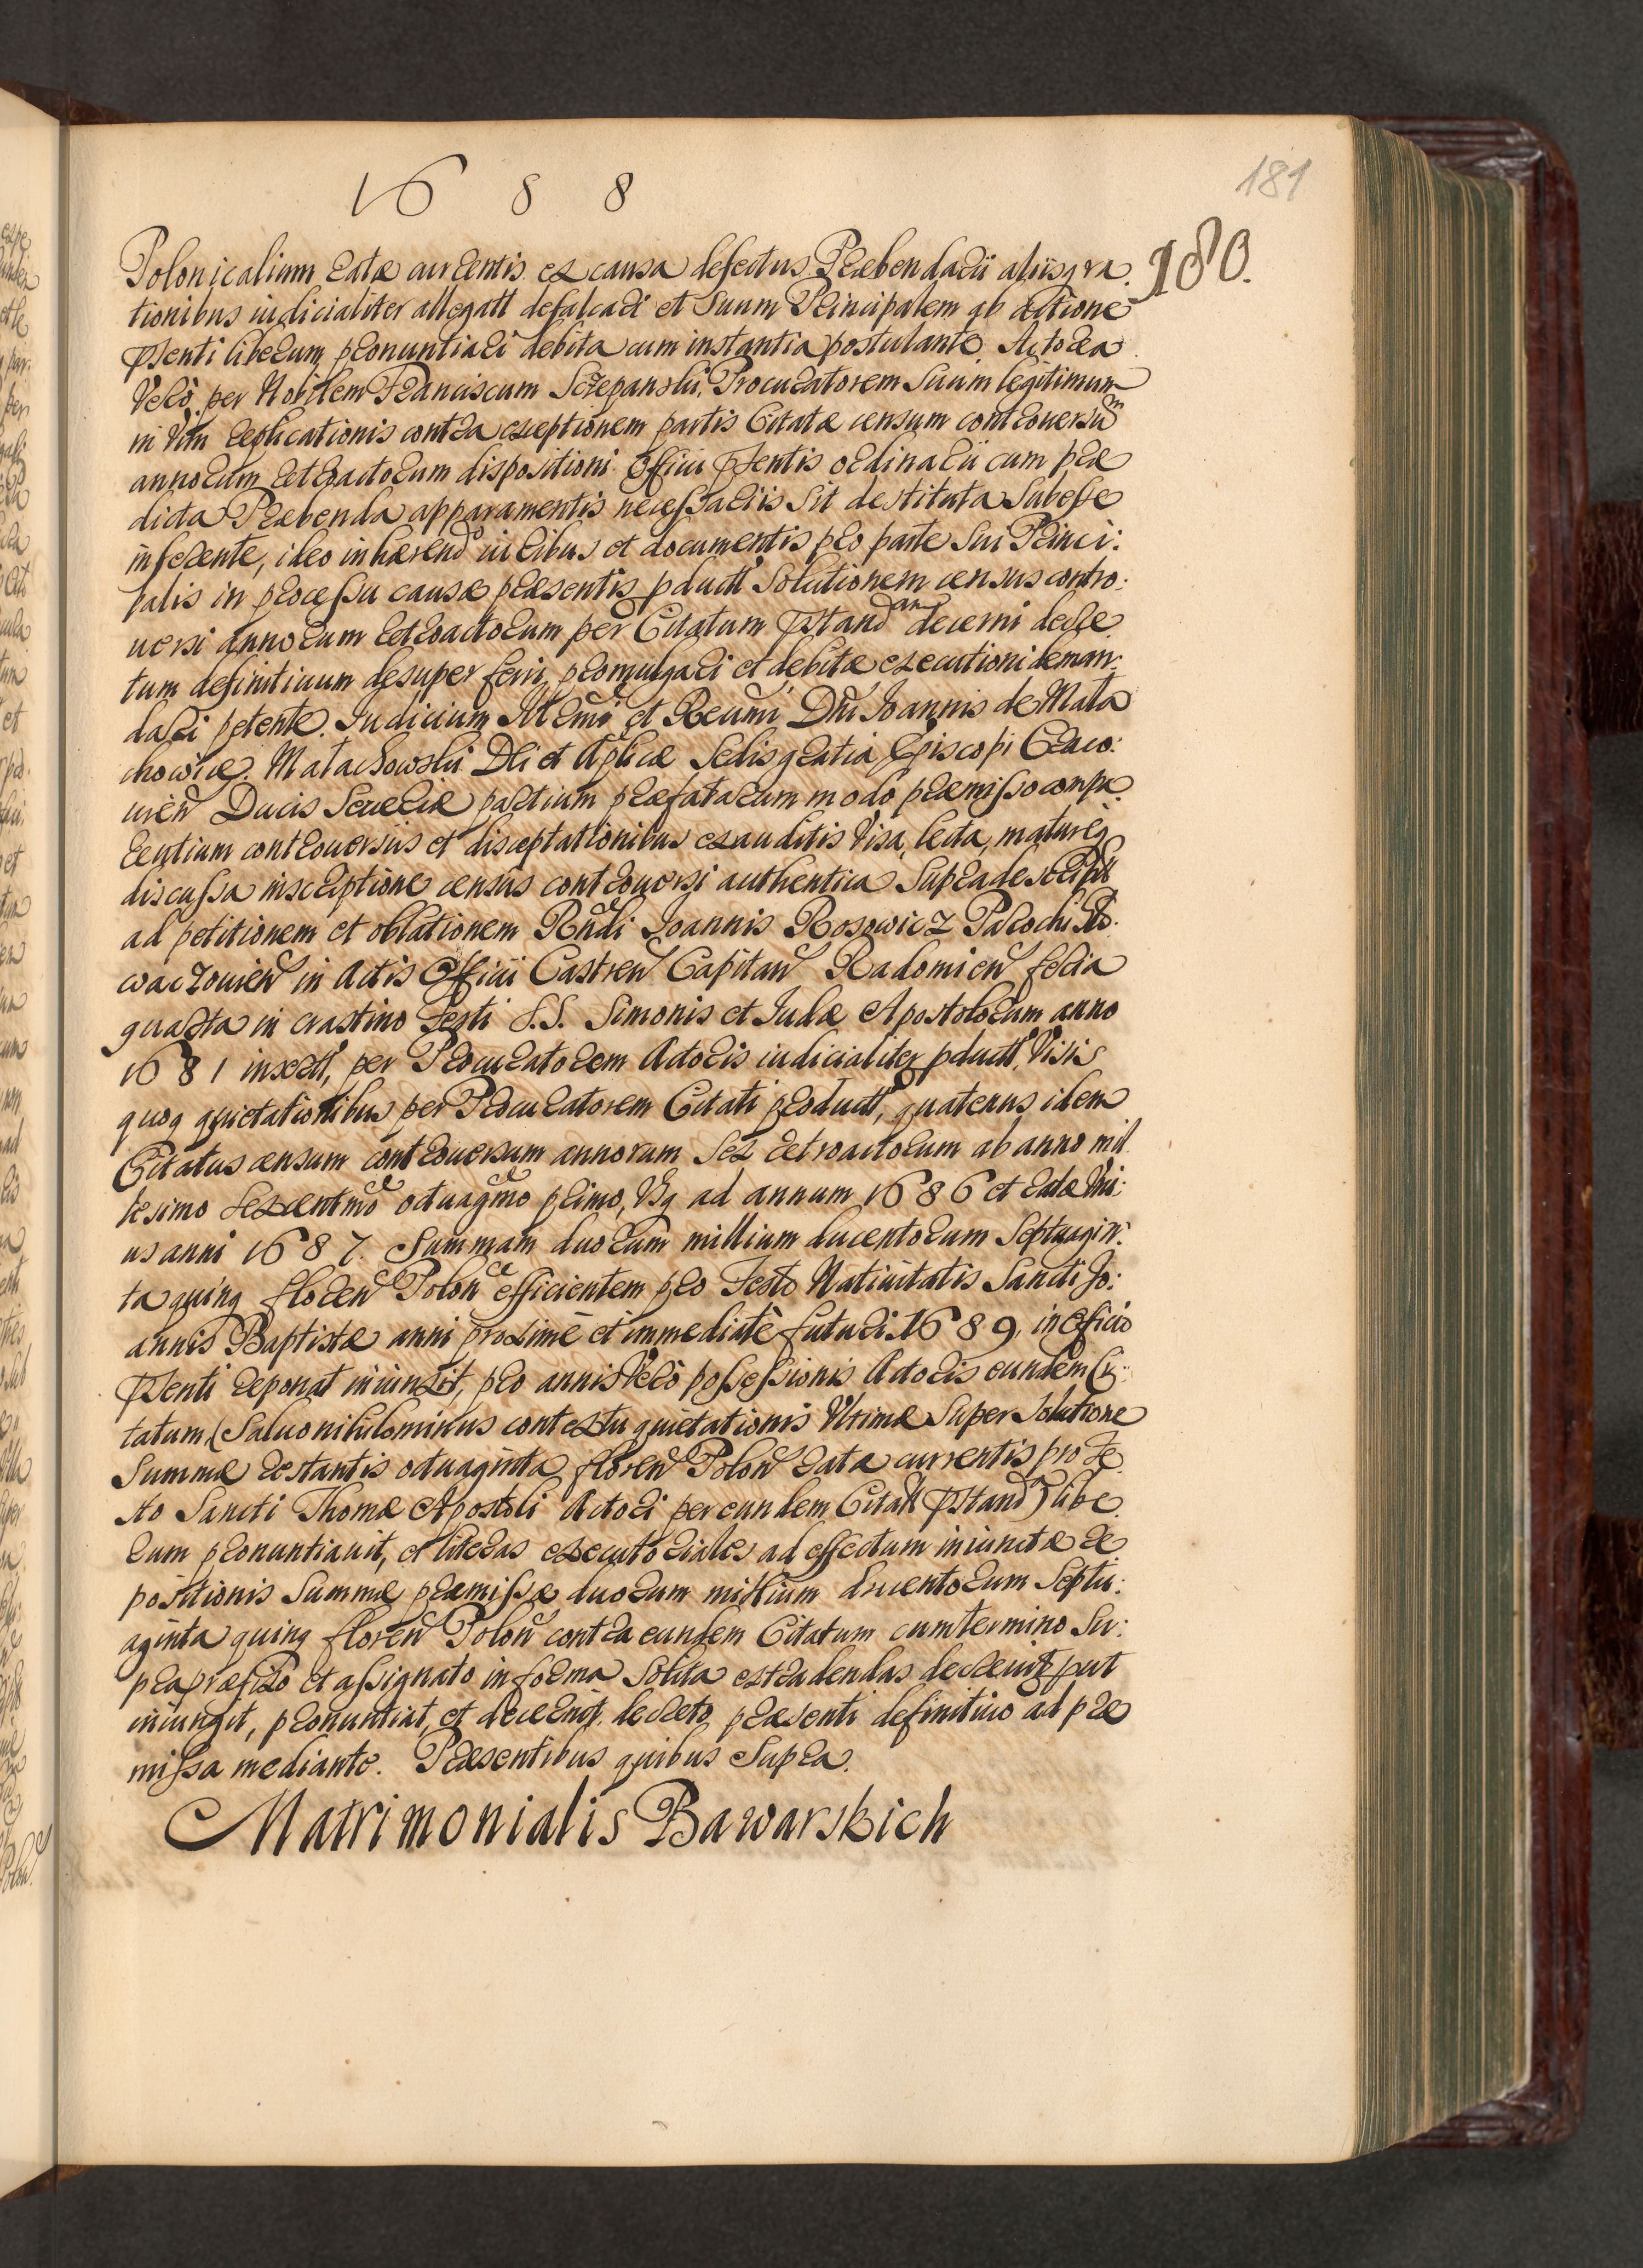 1688
181
180.
Polonicalium ratæ currentis ex causa defectus Præbendarii aliisq ra
tionibus iudicialiter allegatt defalcari et Suum Principalem ab actione
pñsenti liberum pronuntiari debita cum instantia postulante. Actorea
Vero per Nobilem Franciscum Sczepanski Procuratorem Suum legitimum
in vim replicationis contra exceptionem partis Citatæ censum controuersum
annorum retroactorum dispositioni Officii pñsentis ordinarii cum præ
dicta Præbenda apparamentis necessariis sit destituta Subesse
inferente, ideo inhærendo iuribus et documentis pro parte Sui Princi:
palis in processu causæ præsentis pductt Solutionem census contro:
uersi annorum retroactorum per Citatum præstandam decerni decre
tum definitiuum desuper ferri, promulgari et debitæ executioni deman:
dari petente. Iudicium Illrmi et Reumi Dni Ioannis de Mała
chowice Małachowski Dei et Aplicæ Sedis gratia Episcopi Craco:
uien Ducis Seueriæ partium præfatarum modo præmisso compa
rentium controuersiis et disceptationibus exauditis Visa, lecta, matureq
discussa inscriptione census controuersi authentica Supradescript
ad petitionem et oblationem Rndi Ioannis Rosowicz Parochi
waczouien in Actis Officii Castren Capitan Radomien feria
quarta in crastino Festi S.S. Simonis et Iudæ Apostolorum anno
1681 insert, per Procuratorem Actoris iudicialiter pductt, Visis
quoq quietationibus per Procuratorem Citati productt, quatenus idem
Citatus censum controuersum annorum Sex retroactorum ab anno mil
lesimo Sexcentmo octuagmo primo, Vsq ad annum 1686 et ratæ Vni:
us anni 1687. Summam duorum millium ducentorum Septuagin:
ta quinq floren Polon efficientem pro Festo Natiuitatis Sancti Jo:
annis Baptistæ anni proxime et immediatè futuri 1689, in Officio
pñsenti reponat iniunxit, pro annis Vero possessionis Actoris eundem Ci:
tatum (Saluo nihilominus contextu quietationis Vltimæ Super Solutione
Summæ restantis octuaginta floren Polon rata currentis pro Fe
sto Sancti Thomæ Apostoli Actori per eundem Citatt pñstand) libe
rum pronuntiauit, et literas executoriales ad effectum iniunctæ re
positionis Summæ præmissæ duorum millium ducentorum Septu:
aginta quinq floren Polon contra eundem Citatum cum termino Su:
pra præfixo et assignato in forma Solita extradendas decreuit put
iniungit, pronuntiat, et decernit decreto præsenti definitiuo ad præ
missa mediante. Præsentibus quibus Supra.
Matrimonialis Bawarskich